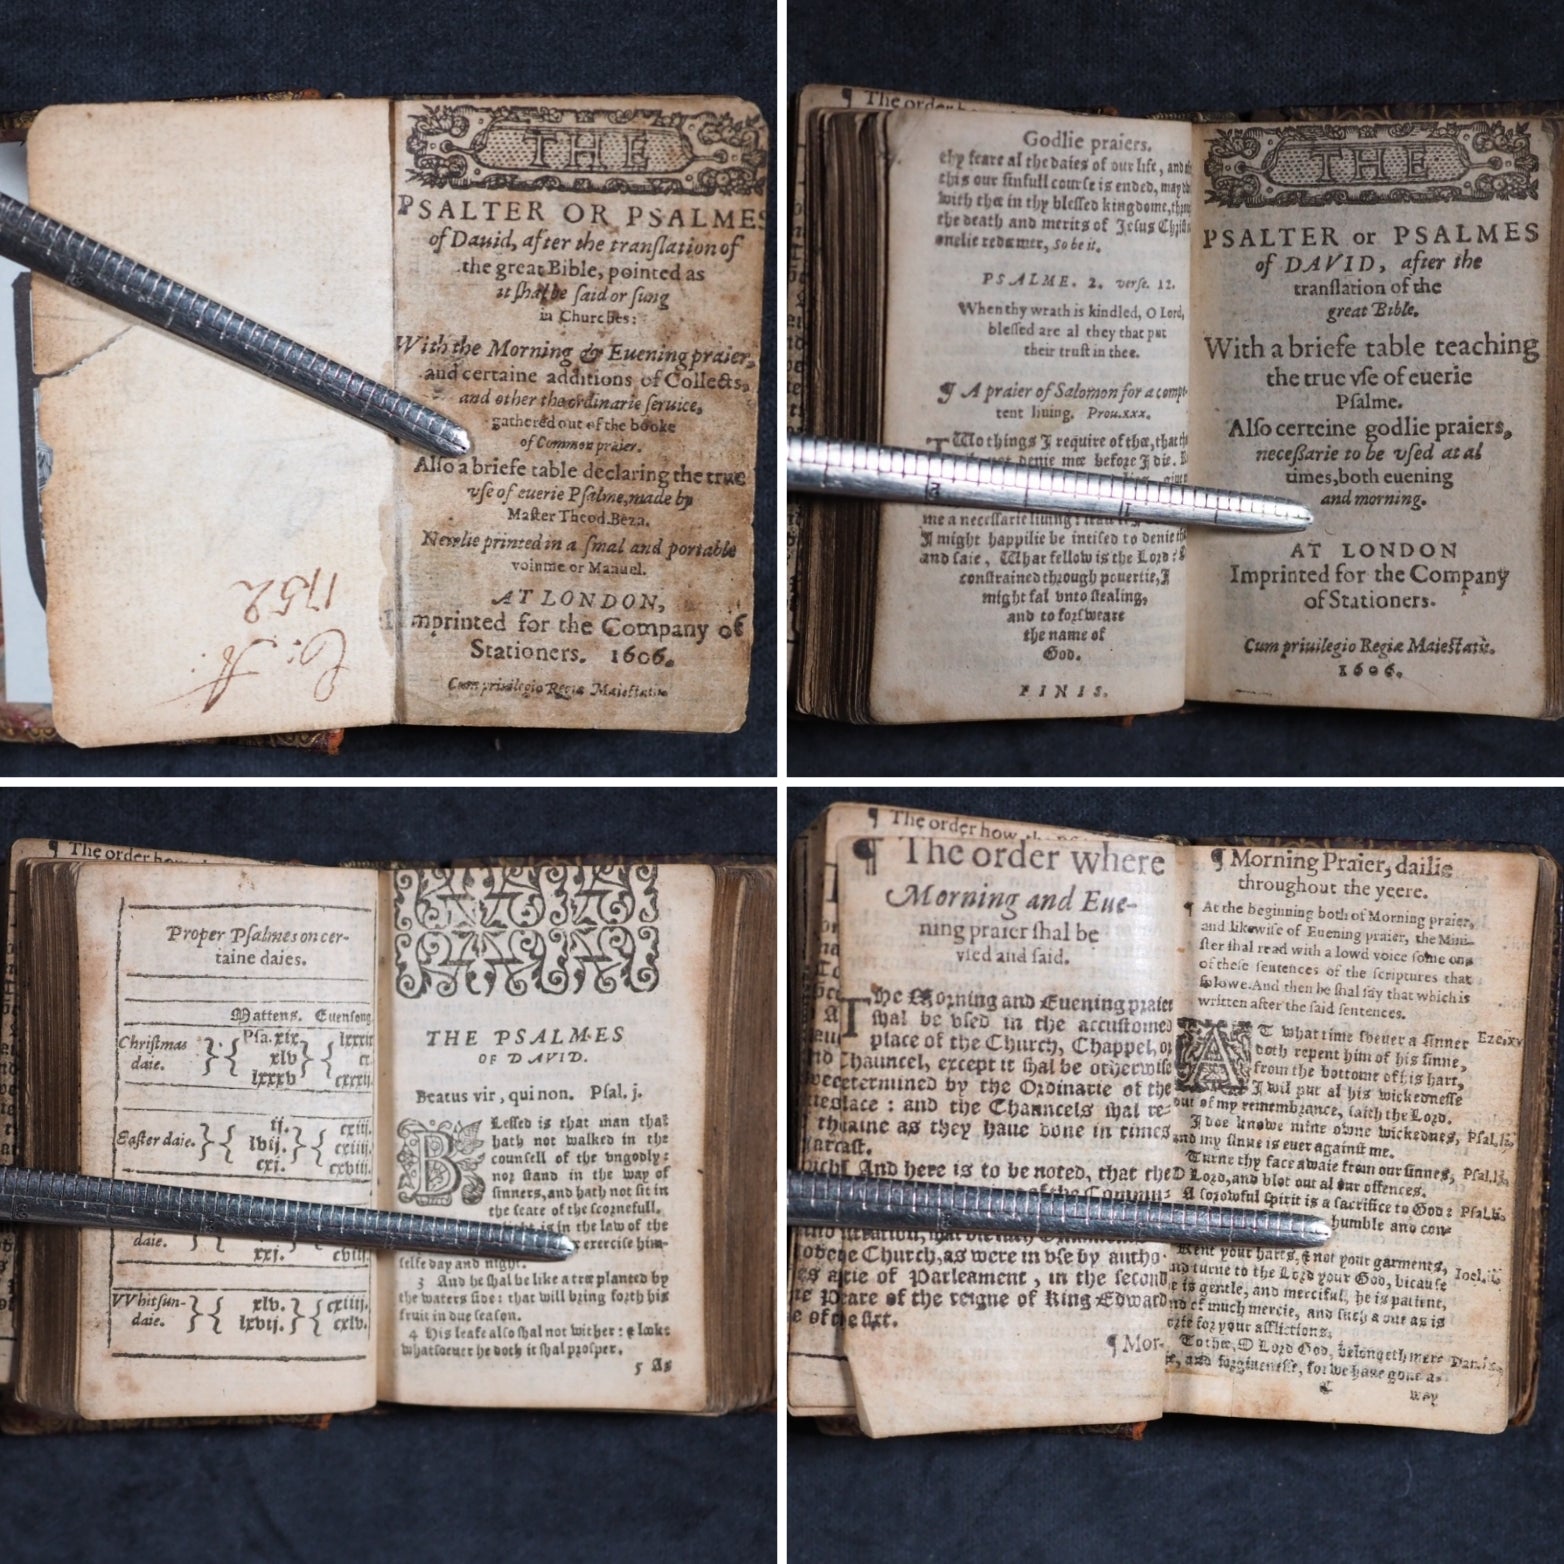 1752
THE
PSALTER OR PSALMES
of Dauid, after the translation of
the great Bible, pointed as
it shalbe said or sung
in Churches:
With the Morning & Euening praier,
and certaine additions of Collects,
and other the ordinarie seruice,
gathered out of the booke
of Common praier.
Also a briefe table declaring the true
vse of euerie Psalme, made by
Master Theod. Beza.
Newlie printed in a smal and portable
volume or Manuel.
AT LONDON,
Imprinted for the Company of
Stationers. 1606.
Cum priuilegio Regiæ Maiestatis.
¶ The order
Godlie praiers.
thy feare al the daies of our life, and
this our sinfull course is ended, may
with thee in thy blessed kingdome,
the death and merits of Jesus Christ
onelie redeemer, so be it.
PSALME. 2. verse. 12.
When thy wrath is kindled, O Lord,
blessed are al they that put
their trust in thee.
¶ A praier of Salomon for a compe-
tent liuing. Prou.xxx.
TWo things I require of thee, that
not denie mee before I die.
me a necessarie liuing:
I might happilie be intised to denie
and saie, What fellow is the Lord:
constrained through pouertie, I
might fal vnto stealing,
and to forsweare
the name of
God.
FINIS.
THE
PSALTER or PSALMES
of DAVID, after the
translation of the
great Bible.
With a briefe table teaching
the true vse of euerie
Psalme.
Also certeine godlie praiers,
necessarie to be vsed at al
times, both euening
and morning.
AT LONDON
Imprinted for the Company
of Stationers.
Cum priuilegio Regiæ Maiestatis.
1606.
¶ The order how
Proper Psalmes on cer-
taine daies.
Mattens. Euensong
Christmas daie. } { Psa.xix. xlv lxxxv } {
Easter daie. } { ij. lvij. cxj. } { cxiij. cxiiij. cxviij.
daie. xxj.
VVhitsun-daie. } { xlv. lxvij. } { cxiiij. cxlv.
THE PSALMES
OF DAVID.
Beatus vir, qui non. Psal. j.
BLessed is that man that
hath not walked in the
counsell of the vngodly:
nor stand in the way of
sinners, and hath not sit in
the seate of the scornefull.
is in the law of the
exercise him-
selfe day and night.
3 And he shal be like a tree planted by
the waters side: that will bring forth his
fruit in due season.
4 His leafe also shal not wither: & looke
whatsoeuer he doth it shal prosper.
5 As
¶ The order how
¶ The order where
Morning and Eue-
ning praier shal be
vsed and said.
THe Morning and Euening praier
shal be vsed in the accustomed
place of the Church, Chappel, or
Chauncel, except it shal be otherwise
determined by the Ordinarie of the
place: and the Chauncels shal re-
maine as they haue done in times
past.
And here is to be noted, that the
Church, as were in vse by autho-
ritie of Parleament, in the second
yeare of the reigne of King Edward
the sixt.
¶ Mor-
¶ Morning Praier, dailie
throughout the yeere.
¶ At the beginning both of Morning praier,
and likewise of Euening praier, the Mini-
ster shal read with a lowd voice some one
of these sentences of the scriptures that
folowe. And then he shal say that which is
written after the said sentences.
AT what time soeuer a sinner
doth repent him of his sinne,
from the bottome of his hart,
I wil put al his wickednesse
out of my remembrance, saith the Lord.
I doe knowe mine owne wickednes,
and my sinne is euer against me.
Turne thy face awaie from our sinnes,
O Lord, and blot out al our offences.
A sorowful spirit is a sacrifice to God:
humble and con-
Rent your harts, & not your garments,
and turne to the Lord your God, bicause
he is gentle, and merciful, he is patient,
and of much mercie, and such a one as is
for your afflictions.
To thee, O Lord God, belongeth mercie
and forgiuenesse, for we haue gone a-
way